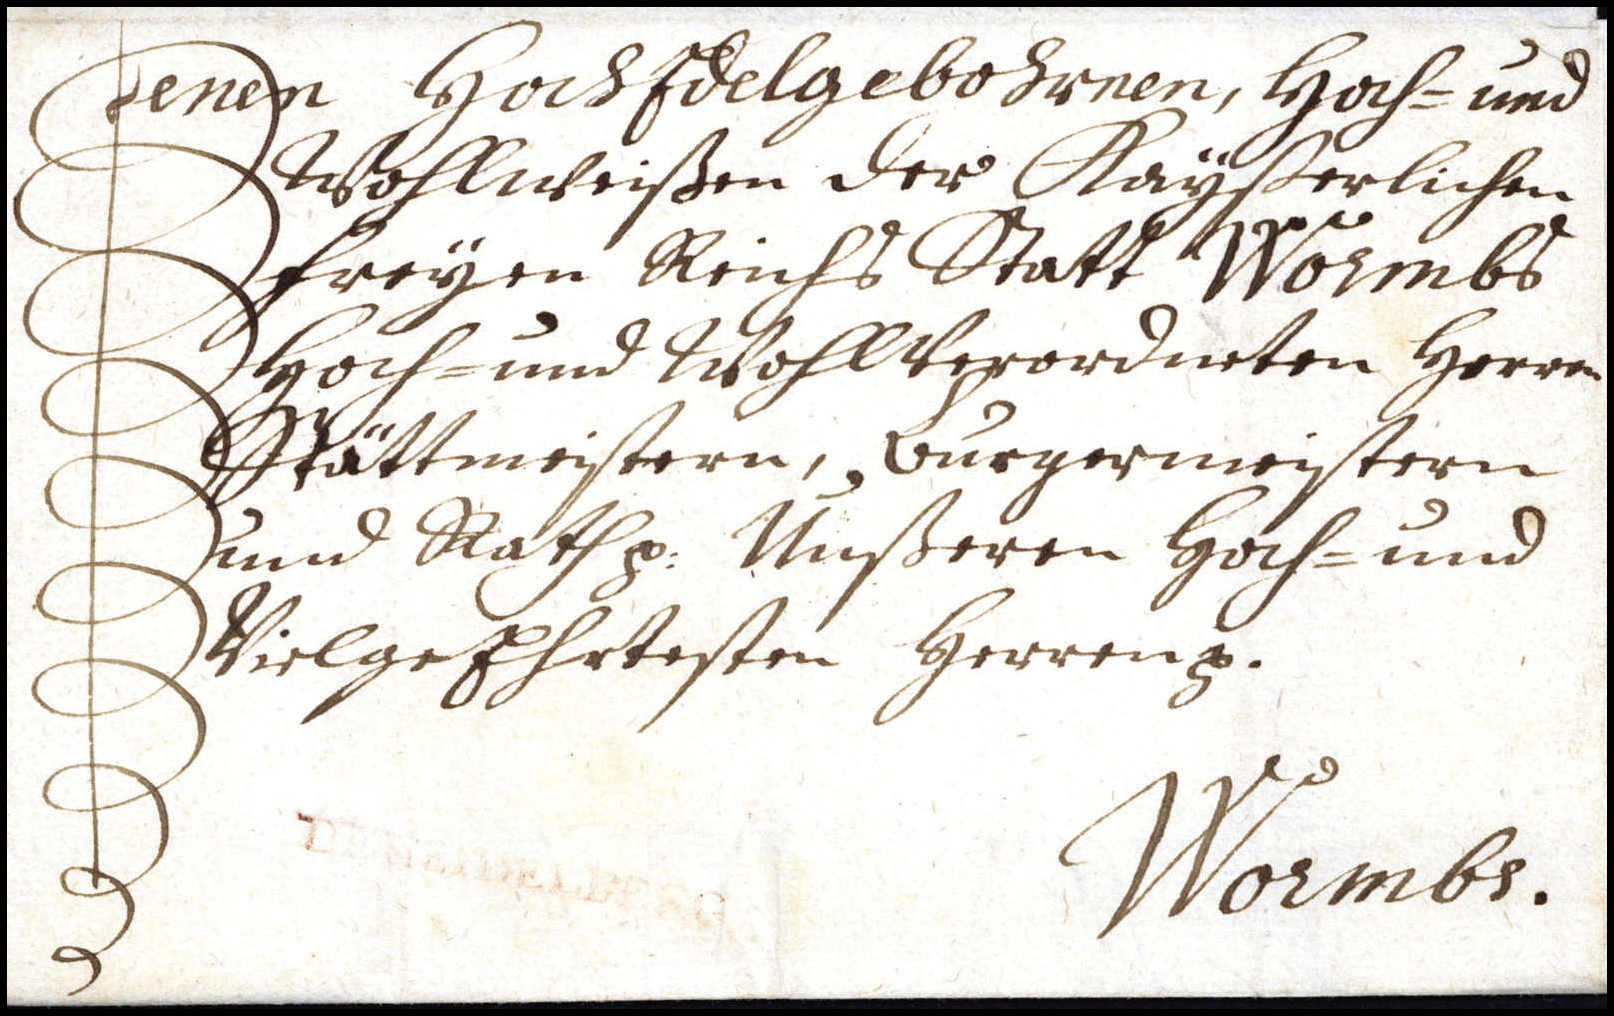 Denen HochEdelgebohrnen, Hoch- und
Wohlweißen der Kayßerlichen
freÿen Reichs Statt Wormbs
Hoch- und Wohlverordneten Herren
Stättmeistern, Burgermeistern
und Rath p. Unßeren Hoch- und
VielgeEhrtesten Herren p.
Wormbs.